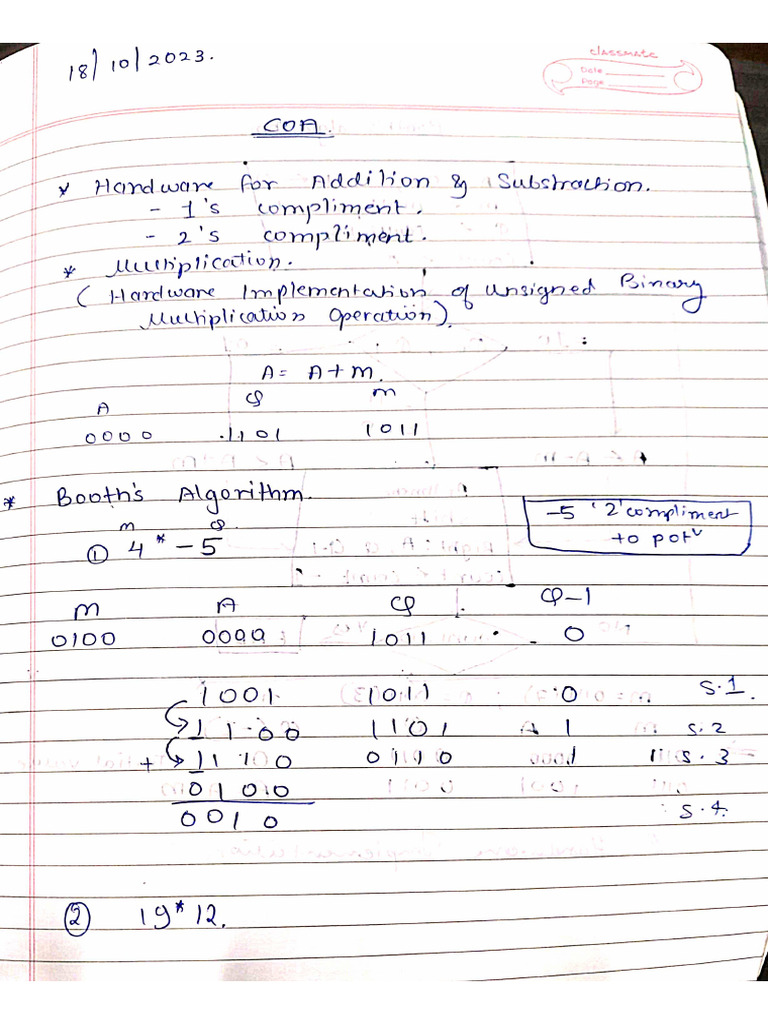 classmate
Date
Page
18/10/2023.
COA.
* Hardware for Addition & Substraction.
- 1's compliment.
- 2's compliment.
* Multiplication.
( Hardware Implementation of Unsigned Binary
Multiplication Operation).
A = A + M.
A Q M
0000 1101 1011
* Booth's Algorithm.
-5 '2' compliment
to potv
M Q
① 4 * -5
M A Q Q-1
0100 0000 1011 0
1001 1011 0 S.1
1100 1101 1 S.2
+ 1110 0110 1 S.3
01010
0010 S.4.
② 19 * 12.